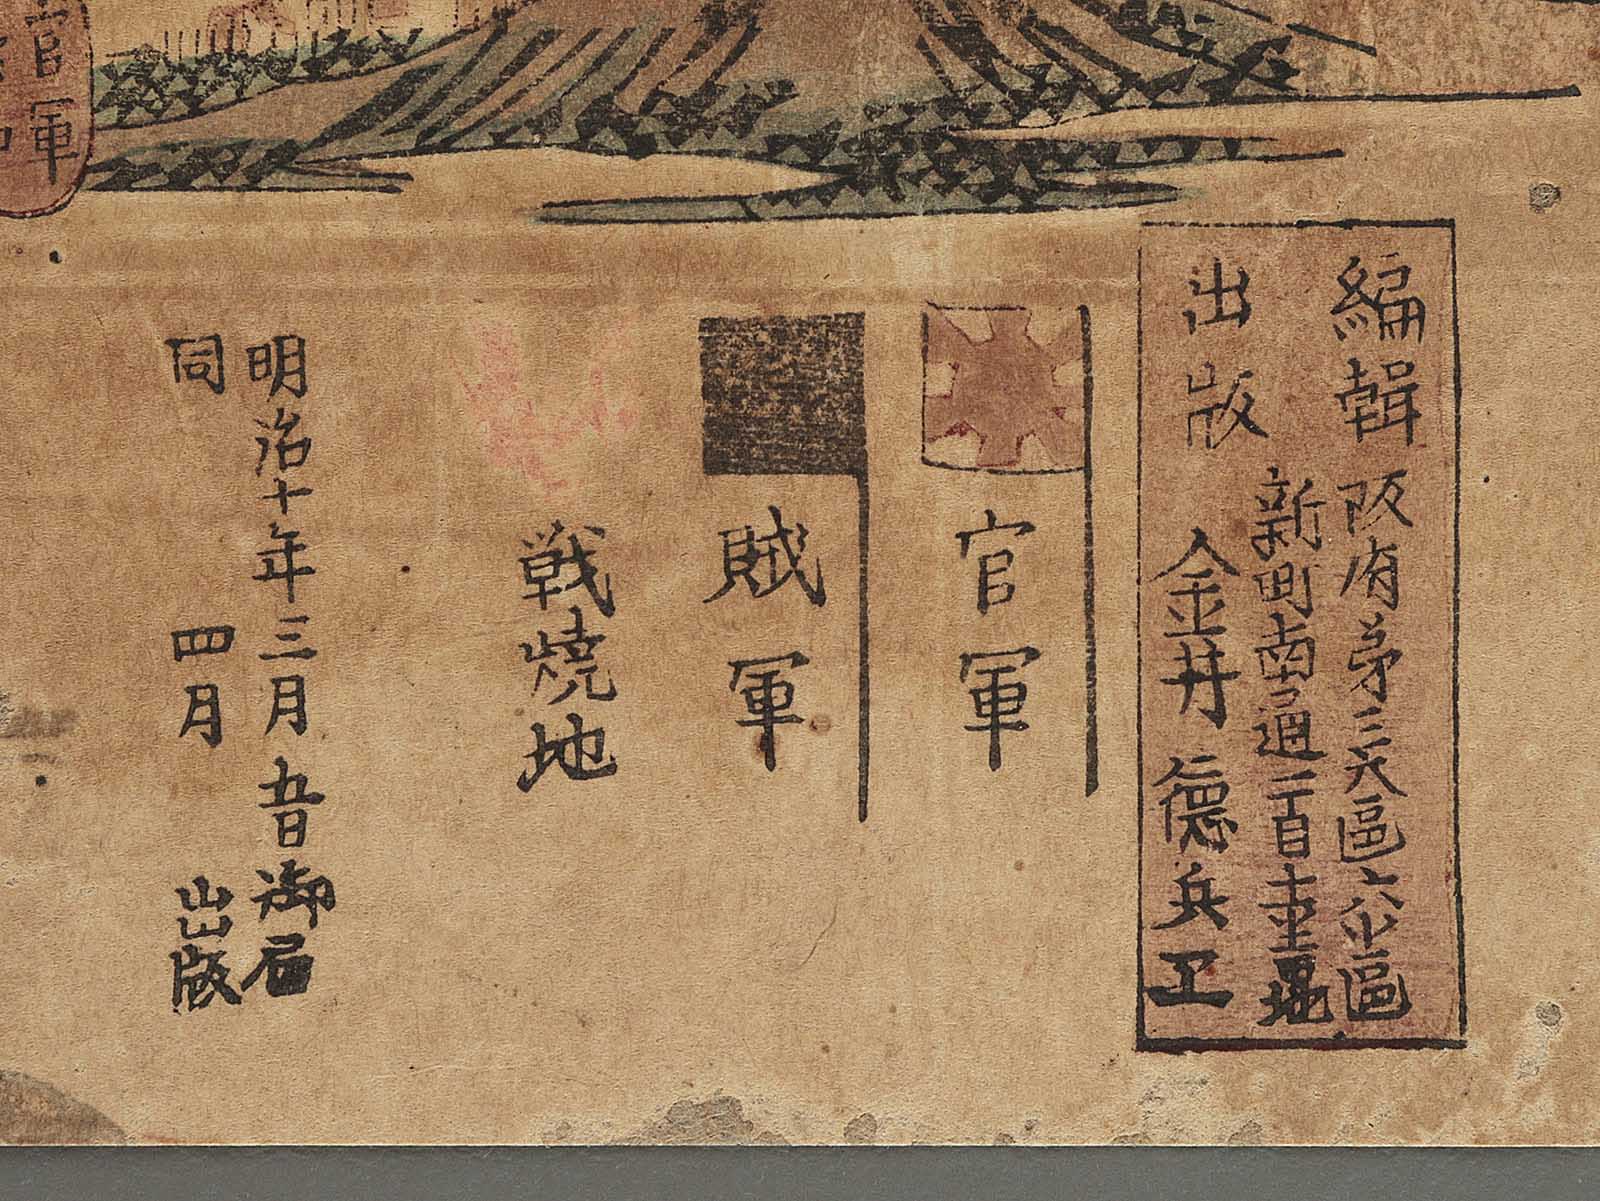 編輯
出版
阪府第三大區六小區
新町南通二百十壹番地
金井德兵卫
官軍
賊軍
戦焼地
明治十年三月九日御届
同 四月 出版
官軍